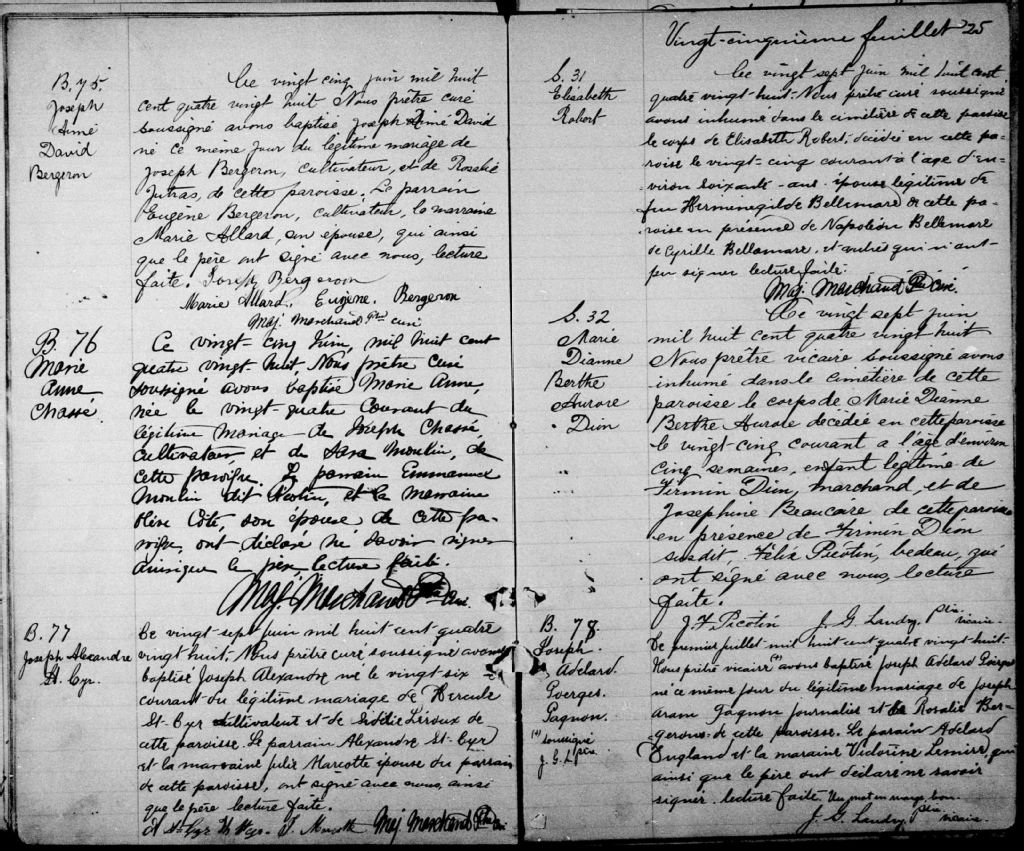 B. 75.
Joseph
Aimé
David
Bergeron
Ce vingt cinq juin mil huit
cent quatre vingt huit Nous prêtre curé
soussigné avons baptisé Joseph Aimé David
né ce même jour du légitime mariage de
Joseph Bergeron, cultivateur, et de Rosalie
Jutras, de cette paroisse. Le parrain
Eugène Bergeron, cultivateur, la marraine
Marie Allard, son épouse, qui ainsi
que le père ont signé avec nous, lecture
faite. Joseph Bergeron
Marie Allard. Eugène. Bergeron
Maj. Marchand Ptre curé
B. 76
Marie
Anne
Chassé
Ce vingt cinq Juin, mil huit cent
quatre vingt huit, Nous prêtre Curé
soussigné avons baptisé Marie Anne,
née le vingt-quatre Courant du
légitime mariage de Joseph Chassé,
cultivateur et de Sara Moulin, de
cette paroisse. Le parrain Emmanuel
Moulin dit Picotin, et la marraine
Côté, son épouse de cette pa-
roisse, ont déclaré ne savoir signer
ainsi que le père lecture faite.
Maj. Marchand Ptre Curé.
B. 77
Joseph Alexandre
St. Cyr.
Ce vingt-sept juin mil huit cent quatre
vingt huit. Nous prêtre curé soussigné avons
baptisé Joseph Alexandre né le vingt six
courant du légitime mariage de Hercule
St-Cyr cultivateur et de Leroux de
cette paroisse. Le parrain Alexandre St-Cyr
et la marraine Julie Marcotte épouse du parrain
de cette paroisse, ont signé avec nous, ainsi
que le père lecture faite.
A St-Cyr J. Marcotte Maj. Marchand Ptre curé
Vingt-cinquième feuillet 25
S. 31
Elisabeth
Robert
Ce vingt sept juin mil huit cent
quatre vingt-huit. Nous prêtre curé soussigné
avons inhumé dans le cimetière de cette paroisse
le corps de Elisabeth Robert, décédée en cette pa-
roisse le vingt-cinq courant à l'âge d'en-
viron soixante - ans. épouse légitime de
feu Hermenegilde Bellemare de cette pa-
roisse en présence de Napoléon Bellemare
de Cyrille Bellemare, et autres qui n'ont
pu signer lecture faite.
Maj. Marchand Ptre curé.
S. 32
Marie
Dianne
Berthe
Aurore
Dion
Ce vingt sept juin
mil huit cent quatre vingt huit
Nous prêtre vicaire soussigné avons
inhumé dans le cimetière de cette
paroisse le corps de Marie Dianne
Berthe Aurore décédée en cette paroisse
le vingt-cinq courant a l'âge d'environ
cinq semaines, enfant légitime de
Firmin Dion, marchand, et de
Josephine Beaucaire de cette paroisse
en présence de Firmin Dion
susdit, Félix Picotin, bedeau, qui
ont signé avec nous, lecture
faite.
J. F. Picotin J. G. Landry ptre. vicaire.
B. 78.
Joseph.
Adelard.
Goerges.
Gagnon.
(+)
soussigné
J. G. L ptre.
Ce premier juillet mil huit cent quatre vingt huit.
Nous prêtre vicaire (+) avons baptisé Joseph Adelard Goerges
né ce même jour du légitime mariage de Joseph
Aram Gagnon journalier et de Rosalie Ber-
gerons de cette paroisse. Le parain Adelard
England et la maraine Victorine Lemire, qui
ainsi que le père ont déclaré ne savoir
signer. lecture faite. Un mot en marge bon.
J. G. Landry ptre vicaire.